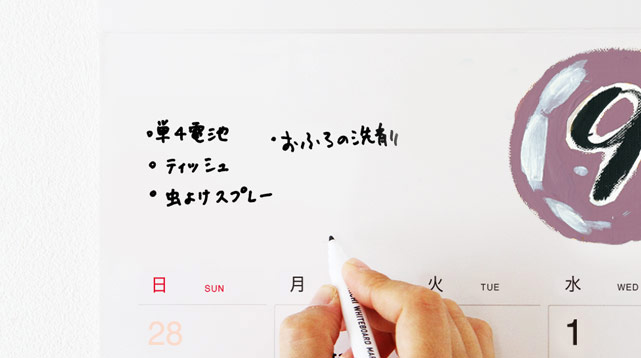 ・単4電池
・ティッシュ
・虫よけスプレー
・おふろの洗剤
9
日 SUN
月
火 TUE
水 WED
28
1
WHITEBOARD MAR